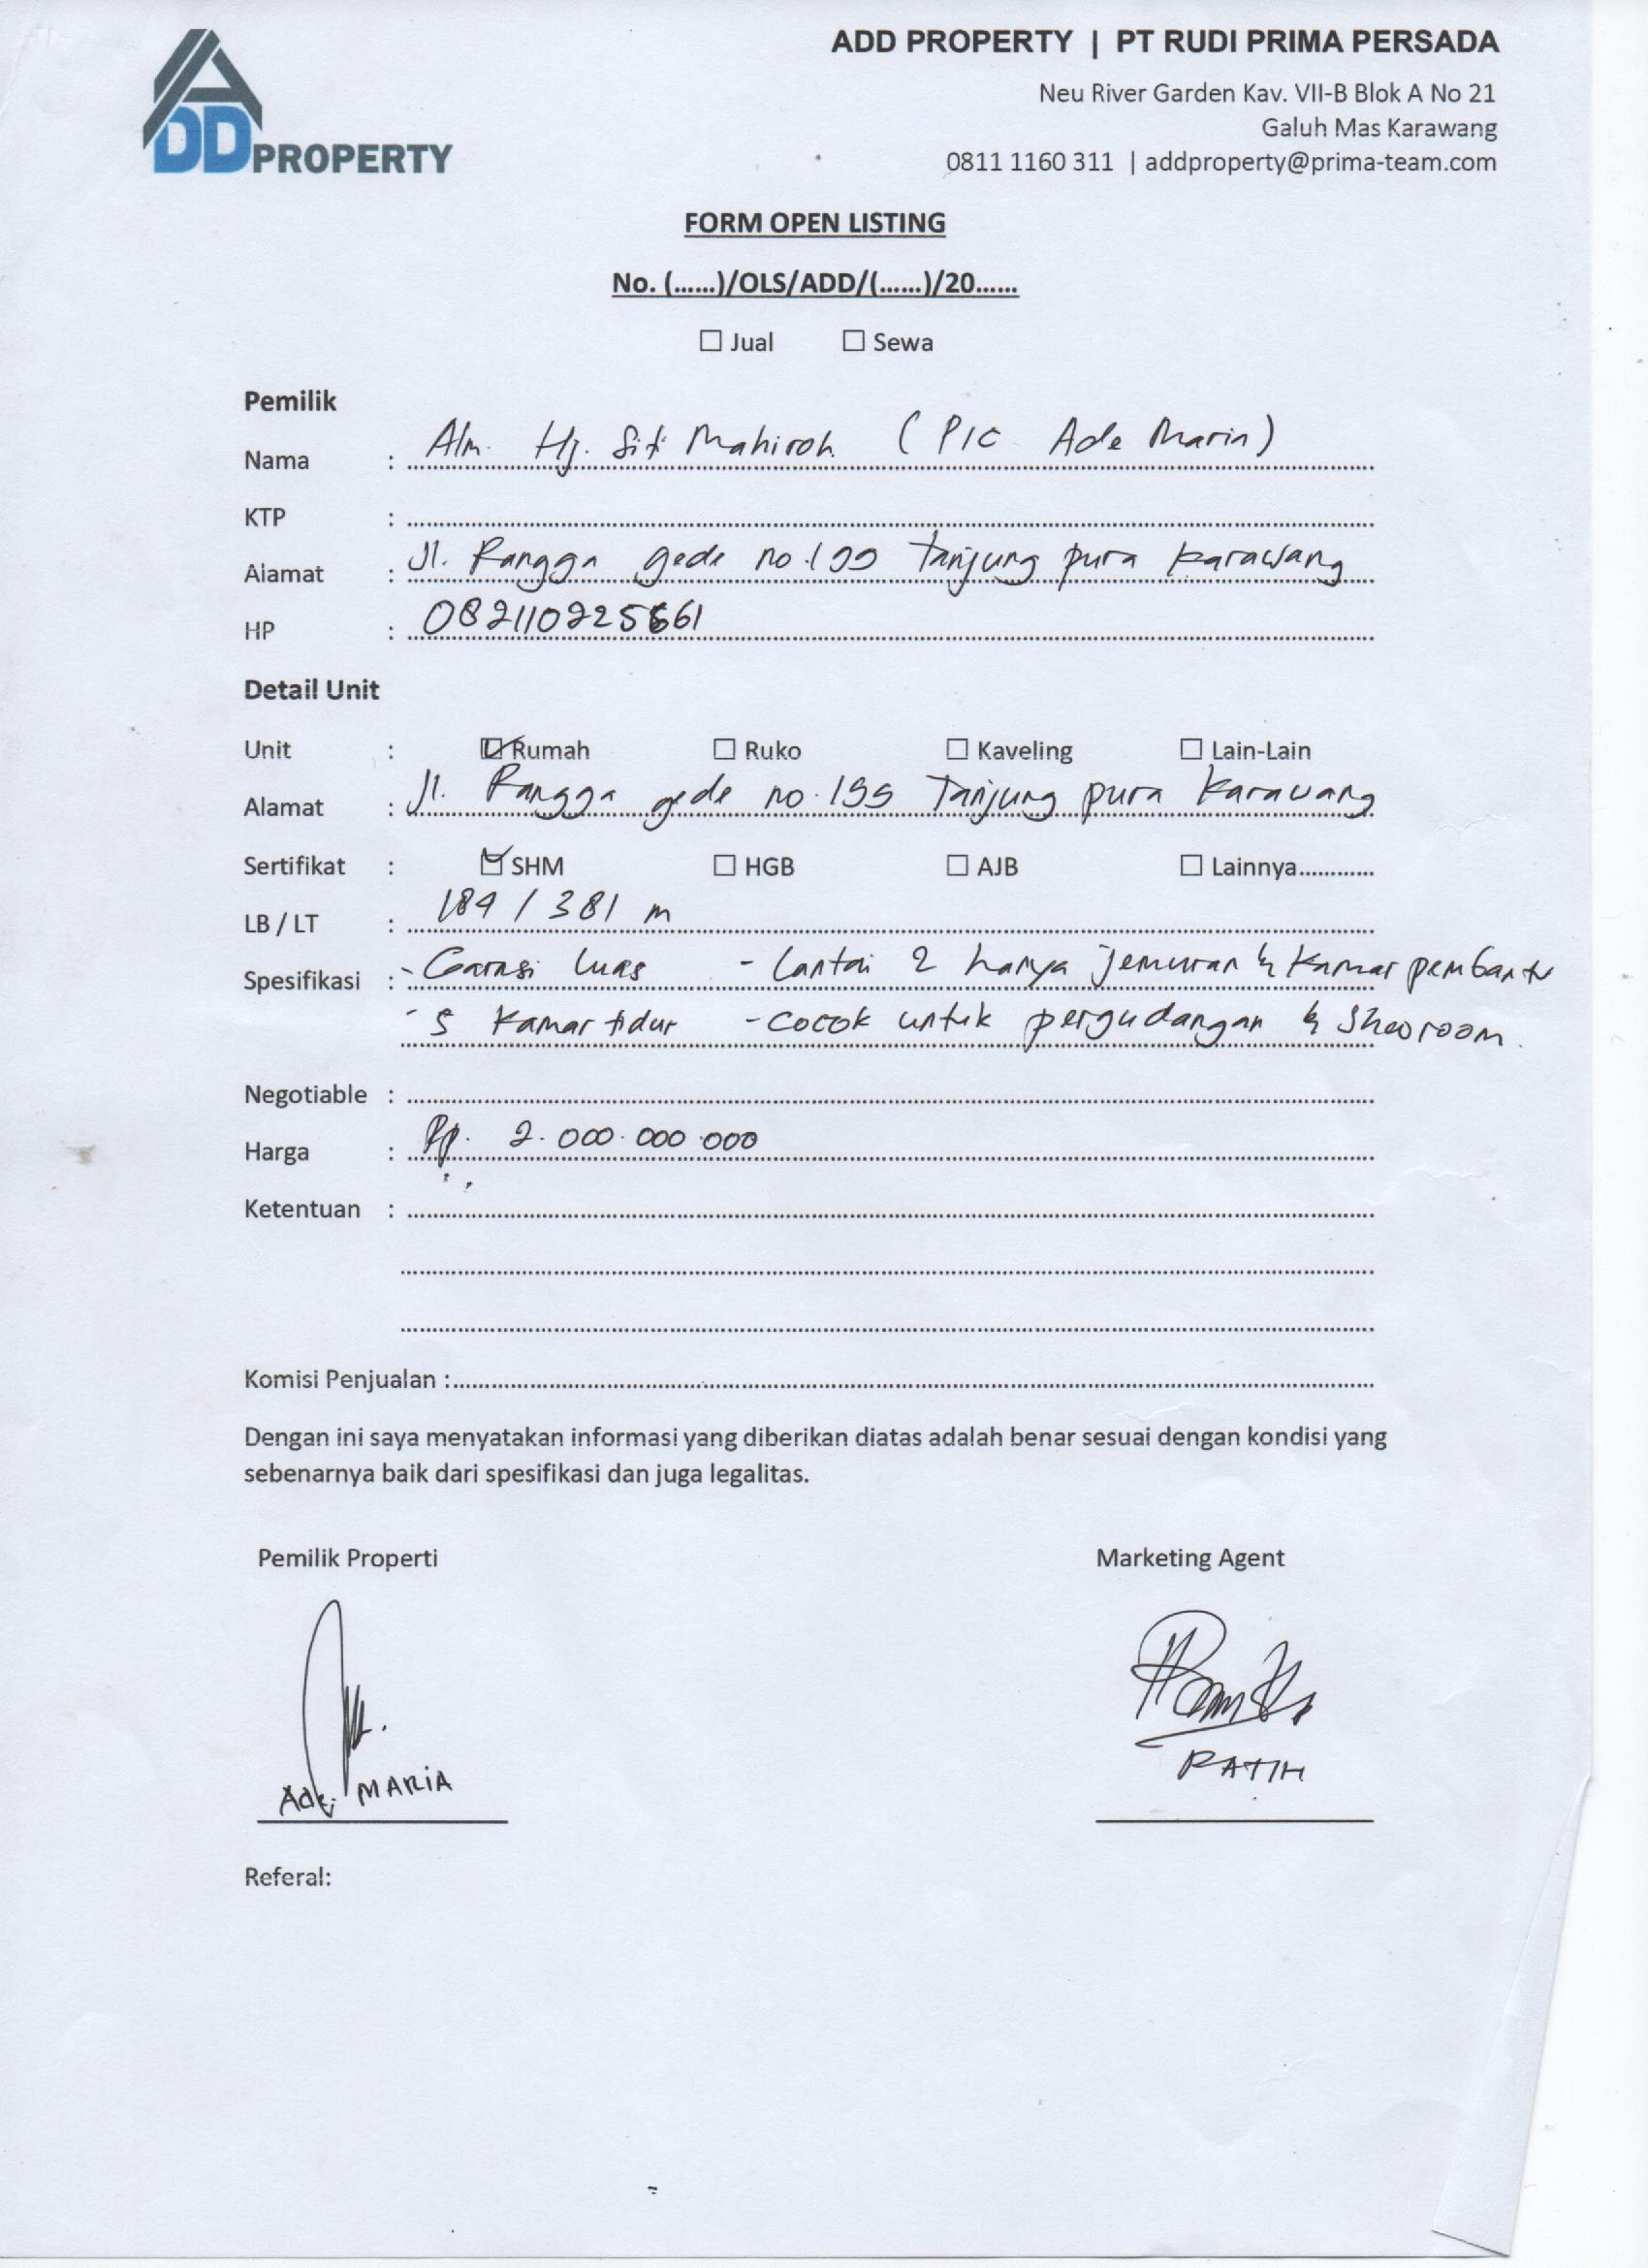 ADD PROPERTY
ADD PROPERTY | PT RUDI PRIMA PERSADA
Neu River Garden Kav. VII-B Blok A No 21
Galuh Mas Karawang
0811 1160 311 | addproperty@prima-team.com
FORM OPEN LISTING
No. (......)/OLS/ADD/(......)/20......
☐ Jual ☐ Sewa
Pemilik
Nama : Alm. Hj. Siti Mahiroh (PIC Ade Maria)
KTP :
Alamat : Jl. Rangga gede no.199 Tanjung pura Karawang
HP : 082110225661
Detail Unit
Unit : ☑ Rumah ☐ Ruko ☐ Kaveling ☐ Lain-Lain
Alamat : Jl. Rangga gede no.199 Tanjung pura Karawang
Sertifikat : ☑ SHM ☐ HGB ☐ AJB ☐ Lainnya............
LB / LT : 184 / 381 m
Spesifikasi : - Garasi luas - Lantai 2 hanya jemuran & Kamar pembantu
- 5 Kamar tidur - Cocok untuk pergudangan & Showroom.
Negotiable :
Harga : Rp. 2.000.000.000
Ketentuan :
Komisi Penjualan :
Dengan ini saya menyatakan informasi yang diberikan diatas adalah benar sesuai dengan kondisi yang
sebenarnya baik dari spesifikasi dan juga legalitas.
Pemilik Properti Marketing Agent
Ade MARIA RATIH
Referal: